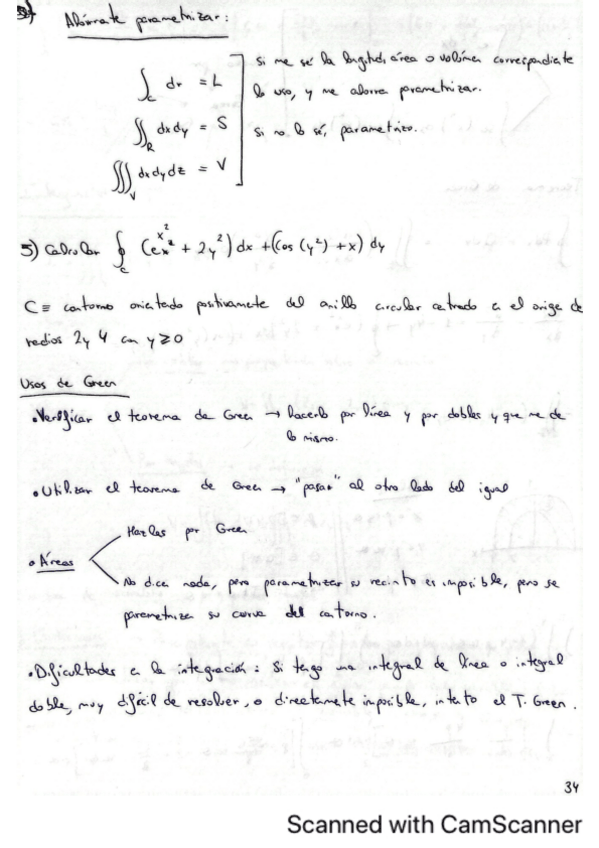 Ahórrate parametrizar:
∫_C dr = L
∬_R dxdy = S
∭_V dxdydz = V
Si me sé la longitud, área o volúmen correspondiente
lo uso, y me ahorro parametrizar.
Si no lo sé, parametrizo.
5) Calcular ∮_C (e^{x^2} + 2y^2) dx + (cos (y^2) + x) dy
C ≡ contorno orientado positivamente del anillo circular centrado en el origen de
radios 2 y 4 con y ≥ 0
Usos de Green
• Verificar el teorema de Green → hacerlo por línea y por dobles y que me de
lo mismo.
• Utilizar el teorema de Green → "pasar" al otro lado del igual
• Áreas
Hazlas por Green
No dice nada, pero parametrizar su recinto es imposible, pero se
parametrizar su curva del contorno.
• Dificultades en la integración: Si tengo una integral de línea o integral
doble, muy difícil de resolver, o directamente imposible, intento el T. Green.
34
Scanned with CamScanner